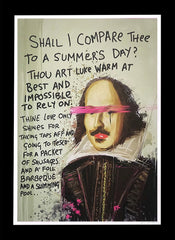 SHALL I COMPARE THEE
TO A SUMMER'S DAY?
THOU ART LUKE WARM AT
BEST AND
IMPOSSIBLE
TO RELY ON.
THINE LOVE ONLY
SHINES FOR
TAKING TAPS AFF AND
GOING TO TRESCO
FOR A PACKET
OF SAUSAGES
AND A
BARBEQUE
AND A SWIMMING
POOL.